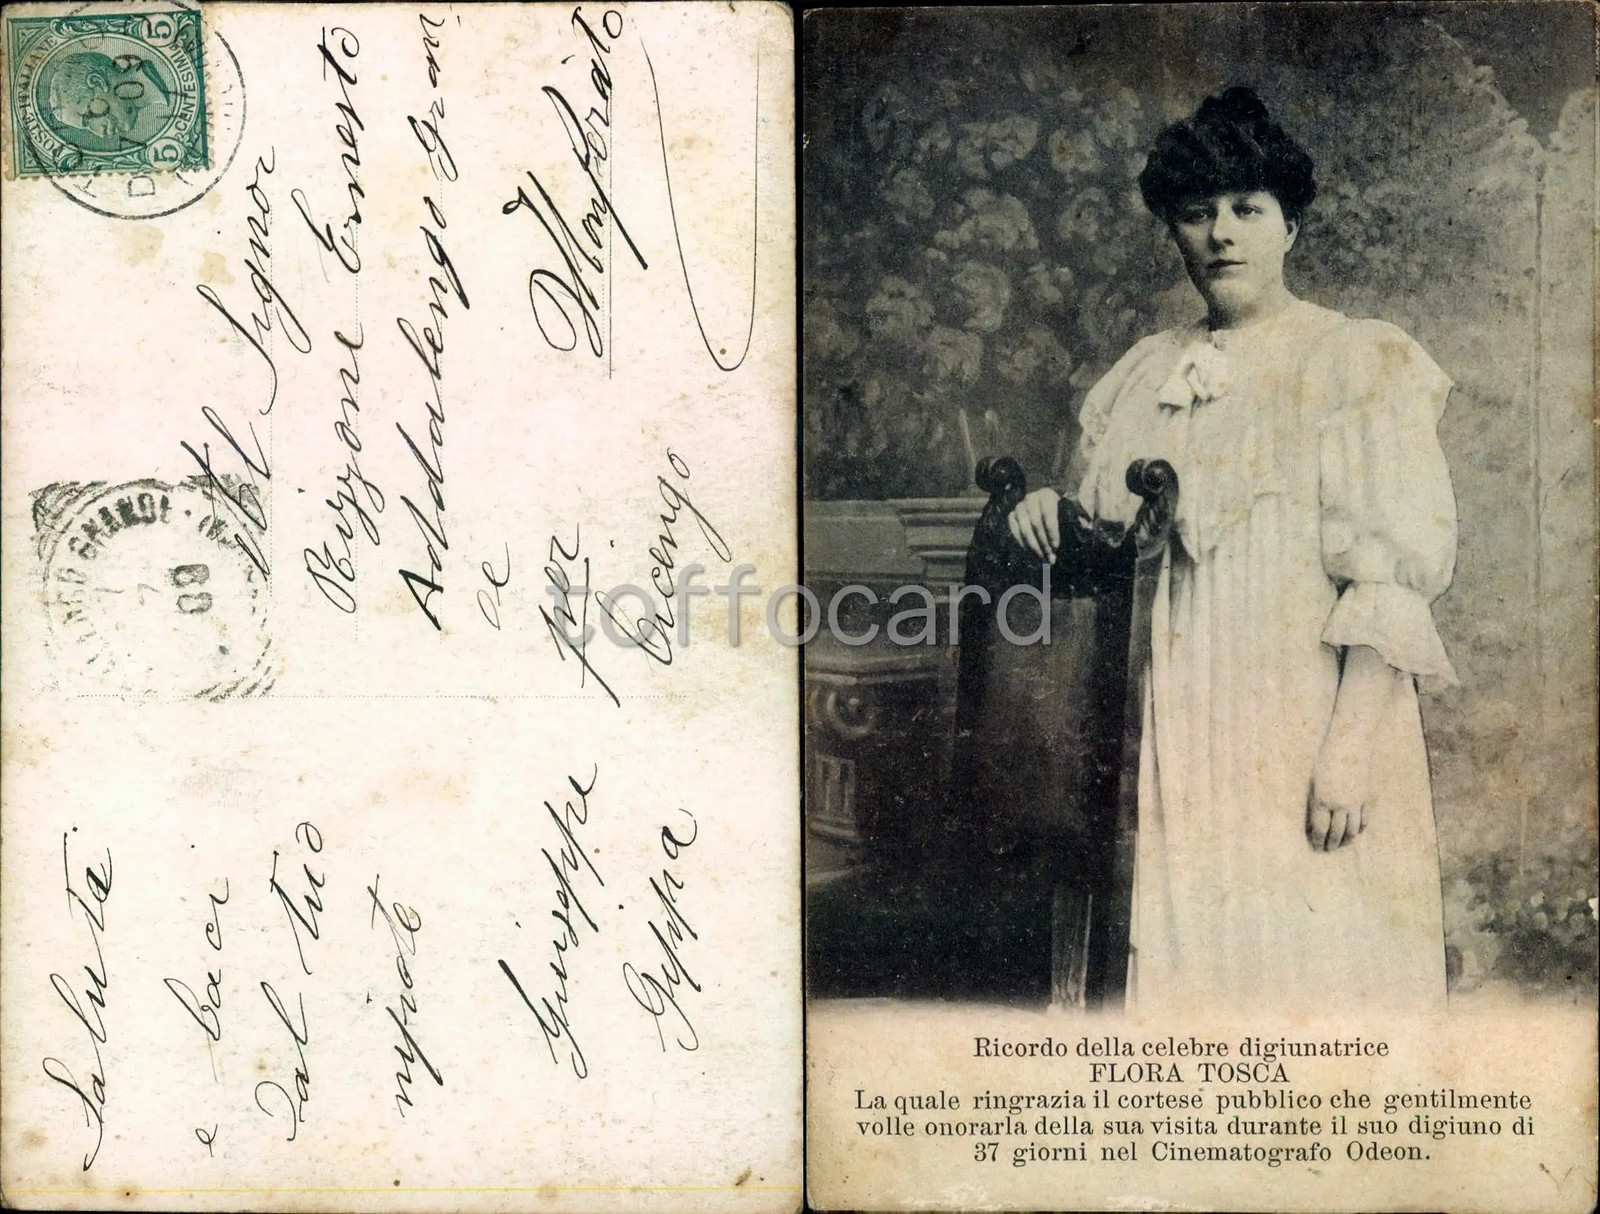 POSTE ITALIANE
5 CENTESIMI 5
7-09
GRANDE
7
09
Al Signor
Rizzone Ernesto
Addalengo Gran
de
per Monferrato
Cicengo
Saluta
e baci
dal tuo
nipote
Giuseppe
Gippa
toffocard
Ricordo della celebre digiunatrice
FLORA TOSCA
La quale ringrazia il cortese pubblico che gentilmente
volle onorarla della sua visita durante il suo digiuno di
37 giorni nel Cinematografo Odeon.